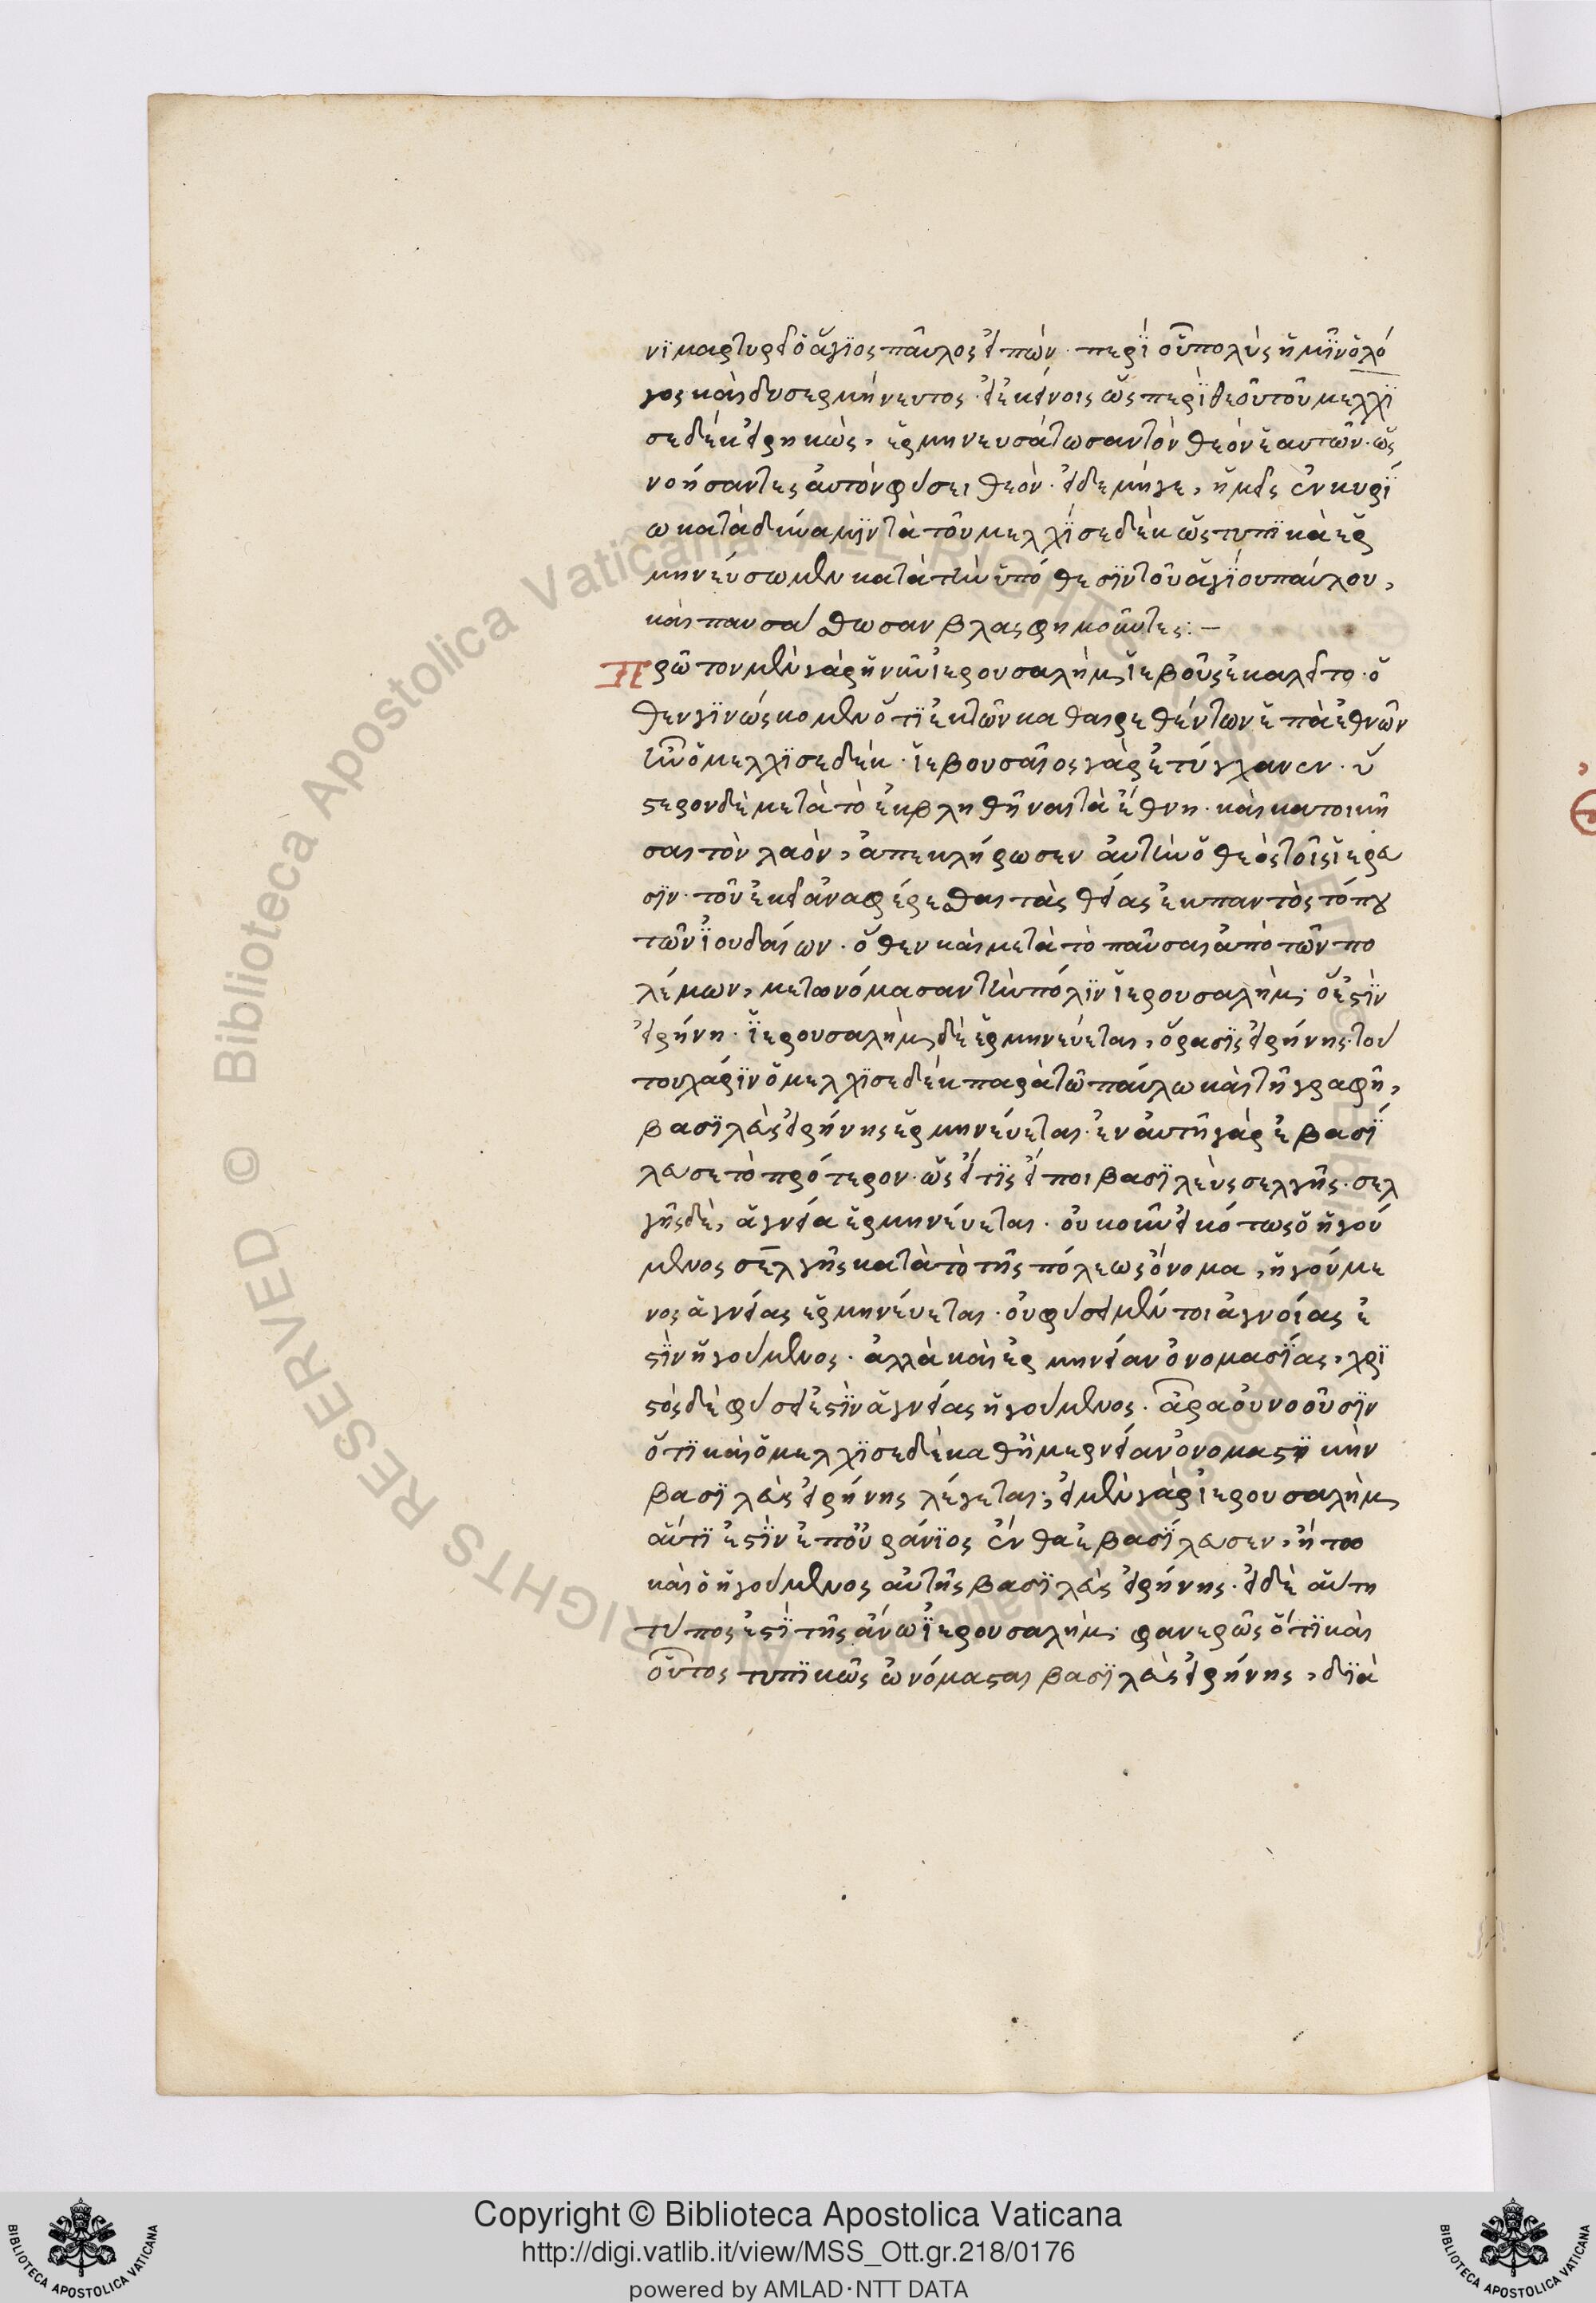 νϊ μαρτυρεῖ ὁ ἅγϊος παῦλος εἰπών· περὶ οὗ πολὺς ἡμῖν ὁ λό
γος καὶ δυσερμήνευτος· εἰ ἐκεῖνοις ὡς περὶ θεοῦ τοῦ μελχϊ
σεδὲκ εἰρηκὼς, ἑρμηνευσάτωσαν τὸν θεὸν ἑαυτῶν· ὡς
νοήσαντες ἀυτὸν φύσει θεὸν· εἰ δε μήγε, ἡμεῖς ἐν κυρϊ
ω κατὰ δύναμϊν τὰ τοῦ μελχϊσεδὲκ ὡς τυπϊκὰ ερ
μηνεύσωμεν κατὰ τὴν ὑπόθεσϊν τοῦ ἁγϊου παύλου,
καὶ παυσάσθωσαν βλασφημοῦντες:—
Πρῶτον μὲν γὰρ ἡ νῦν ἱερουσαλὴμ, ϊεβοῦς ἐκαλεῖτο· ὅ
θεν γϊνώσκομεν ὅτϊ ἐκ τῶν καθαιρεθέντων ἑπτὰ ἐθνῶν
ἦν ὁ μελχϊσεδὲκ· ϊεβουσαῖος γὰρ ἐτύγχανεν· ὕ
στερον δὲ μετὰ τὸ ἐκβληθῆναι τὰ ἔθνη· καὶ κατοικῆ
σαι τὸν λαὸν, ἀπεκλήρωσεν ἀυτὴν ὁ θεὸς τοῖς ἱερεῦ
σϊν· τοῦ ἐκεῖ ἀναφέρεσθαι τὰς θείας ἐκ παντὸς τόπου
τῶν ϊουδαίων· ὅθεν καὶ μετὰ τὸ παῦσαι ἀπὸ τῶν πο
λέμων, μετωνόμασαν τὴν πόλϊν ἱερουσαλὴμ· ὅ ἐστϊν
εἰρήνη· ϊερουσαλὴμ δὲ ἑρμηνεύεται, ὅρασϊς εἰρήνης· τού
του χάρϊν ὁ μελχϊσεδὲκ παρὰ τῶ παύλω καὶ τῆ γραφῆ,
βασϊλεὺς εἰρήνης ἑρμηνεύεται· ἐν ἀυτῆ γὰρ ἐβασϊ
λευσε τὸ πρότερον· ὡς εἴ τϊς εἴποι βασϊλεὺς σελγῆς· σελ
γῆς δὲ, ἁγνεία ἑρμηνεύεται· ὀυκοῦν εἰκότως ὁ ἡγού
μενος σελγῆς κατὰ τὸ τῆς πόλεως ὄνομα, ἡγούμε
νος ἁγνείας ἑρμηνεύεται· ὀυ φύσει μέντοι ἁγνοίας ἐ
στϊν ἡγούμενος· ἀλλὰ καὶ ἑρμηνείαν ὀνομασϊας, χρϊ
στὸς δὲ φύσει ἐστϊν ἁγνείας ἡγούμενος· ἆρα ὀυ νοοῦσϊν
ὅτϊ καὶ ὁ μελχϊσεδὲκ αθ ἡμερνείαν ὀνομαστϊκὴν
βασϊλεὺς εἰρήνης λέγεται; εἰ μὲν γὰρ ἱερουσαλὴμ
αὕτϊ ἐστϊν ἐπουράνϊος ἔνθα ἐβασϊλευσεν, ἤτω
καὶ ὁ ἡγούμενος αὐτῆς βασϊλεὺς εἰρήνης· εἰ δὲ αὕτη
τύπος ἐστϊ τῆς ἄνω ϊερουσαλὴμ· φανερῶς ὅτϊ καὶ
οὗτος τυπϊκῶς ὠνόμασται βασϊλεὺς εἰρήνης, δϊὰ
Copyright © Biblioteca Apostolica Vaticana
http://digi.vatlib.it/view/MSS_Ott.gr.218/0176
powered by AMLAD·NTT DATA